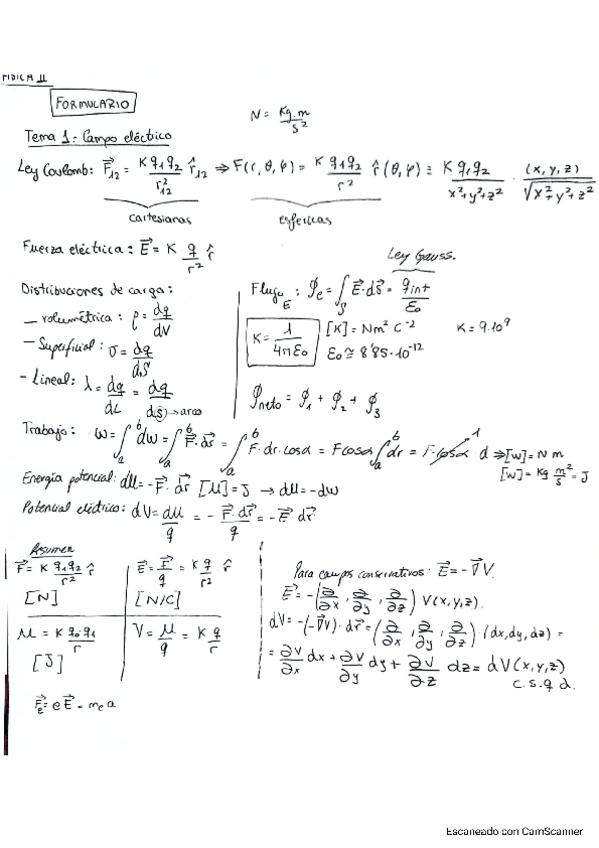 FISICA II
FORMULARIO
N = Kg·m / s²
Tema 1: Campo eléctrico
Ley Coulomb: F⃗₁₂ = K q₁q₂ / r²₁₂ r̂₁₂ ⇒ F(r, θ, φ) = K q₁q₂ / r² r̂(θ, φ) = K q₁q₂ / x²+y²+z² · (x, y, z) / √x²+y²+z²
cartesianas
esféricas
Fuerza eléctrica: E⃗ = K q / r² r̂
Ley Gauss.
Distribuciones de carga:
— volumétrica: ρ = dq / dV
— Superficial: σ = dq / dS
- Lineal: λ = dq / dL = dq / d(S) → arco
Flujo E : φe = ∫S E⃗·dS⃗ = qint / ε₀
K = 1 / 4πε₀
[K] = Nm² C⁻²
K = 9·10⁹
ε₀ ≅ 8'85·10⁻¹²
φneto = φ₁ + φ₂ + φ₃
Trabajo: W = ∫ₐᵇ dw = ∫ₐᵇ F⃗·dr⃗ = ∫ₐᵇ F·dr·cosα = F cosα ∫ₐᵇ dr = F·cosα d ⇒ [W] = N m
1
[W] = Kg m² / s² = J
Energía potencial: dU = -F⃗·dr⃗ [U] = J → dU = -dW
Potencial eléctrico: dV = dU / q = - F⃗·dr⃗ / q = -E⃗ dr⃗
Resumen
F⃗ = K q₁q₂ / r² r̂
[N]
E⃗ = F⃗ / q = K q / r² r̂
[N/C]
U = K q₀q₁ / r
[J]
V = U / q = K q / r
F⃗e = e E⃗ = me a
Para campos conservativos: E⃗ = -∇⃗ V.
E⃗ = -(∂/∂x, ∂/∂y, ∂/∂z) V(x,y,z).
dV = -(-∇⃗V)·dr⃗ = (∂/∂x, ∂/∂y, ∂/∂z) (dx,dy,dz) =
= ∂V/∂x dx + ∂V/∂y dy + ∂V/∂z dz = dV(x,y,z)
c.s.q.d.
Escaneado con CamScanner